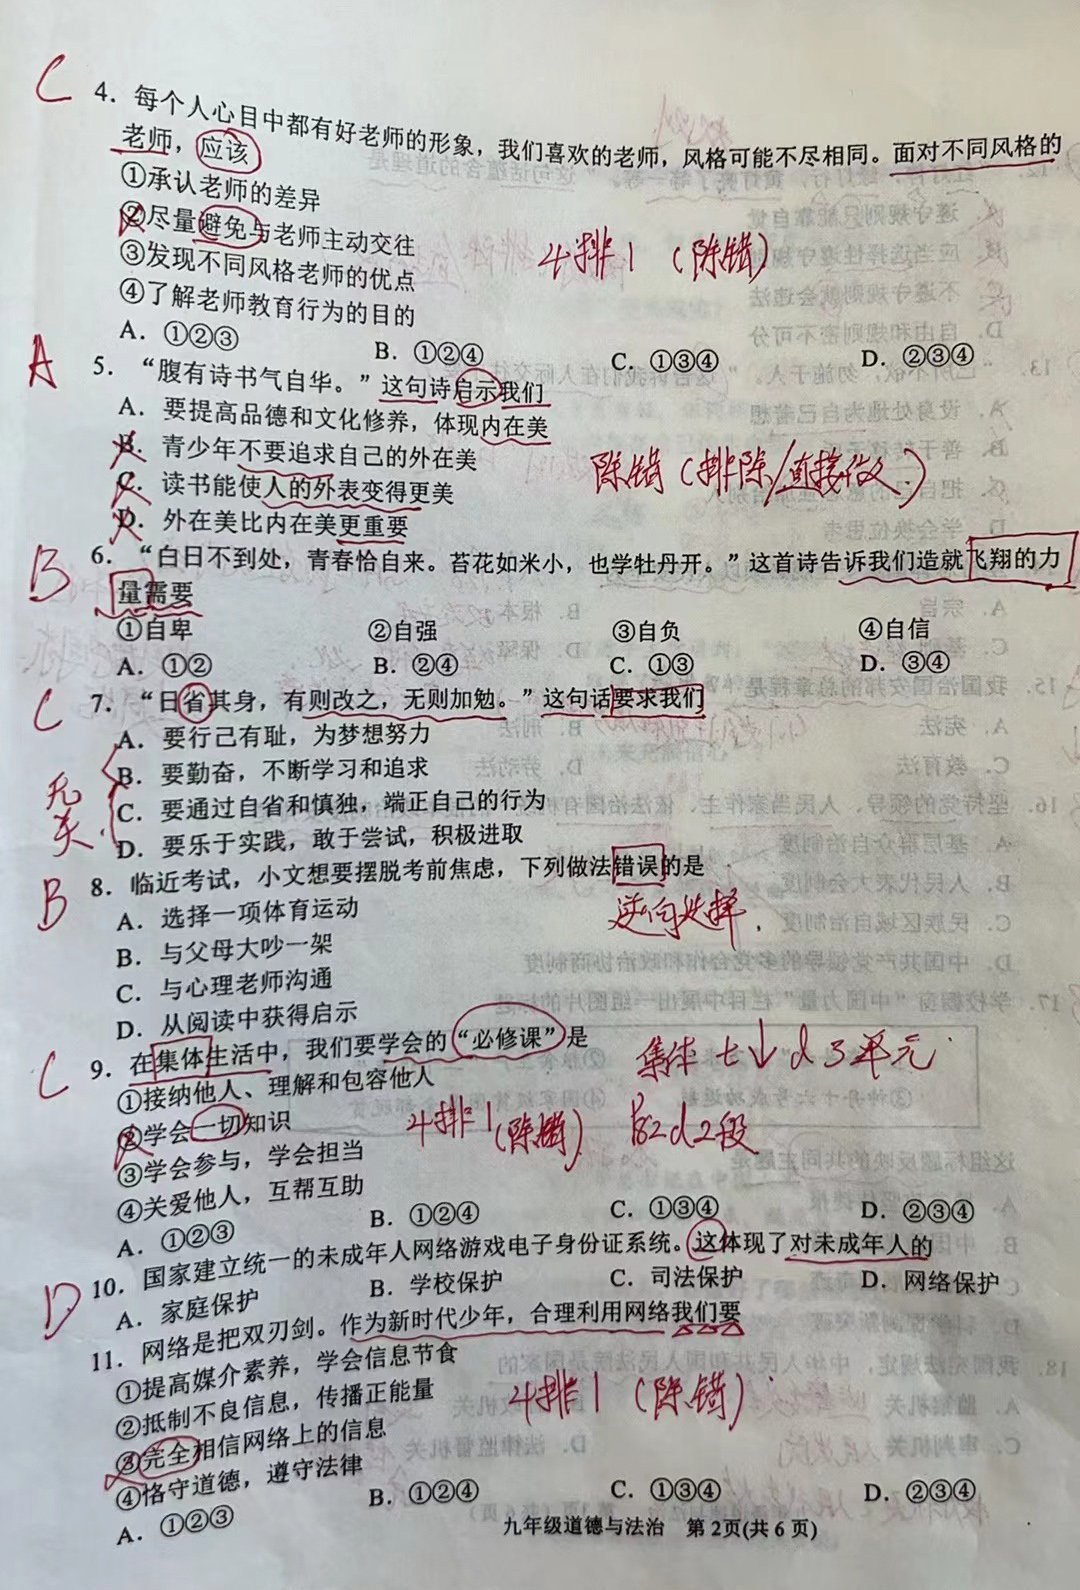 C
4. 每个人心目中都有好老师的形象，我们喜欢的老师，风格可能不尽相同。面对不同风格的
老师，应该
①承认老师的差异
②尽量避免与老师主动交往
③发现不同风格老师的优点
④了解老师教育行为的目的
4排1（除错）
A. ①②③ B. ①②④ C. ①③④ D. ②③④
A
5. “腹有诗书气自华。”这句诗启示我们
A. 要提高品德和文化修养，体现内在美
B. 青少年不要追求自己的外在美
C. 读书能使人的外表变得更美
D. 外在美比内在美更重要
除错（排除/直接做）
B
6. “白日不到处，青春恰自来。苔花如米小，也学牡丹开。”这首诗告诉我们造就飞翔的力
量需要
①自卑 ②自强 ③自负 ④自信
A. ①② B. ②④ C. ①③ D. ③④
C
7. “日省其身，有则改之，无则加勉。”这句话要求我们
A. 要行己有耻，为梦想努力
B. 要勤奋，不断学习和追求
C. 要通过自省和慎独，端正自己的行为
D. 要乐于实践，敢于尝试，积极进取
无关
B
8. 临近考试，小文想要摆脱考前焦虑，下列做法错误的是
逆向选择.
A. 选择一项体育运动
B. 与父母大吵一架
C. 与心理老师沟通
D. 从阅读中获得启示
C
9. 在集体生活中，我们要学会的“必修课”是
集体 七↓d3单元
①接纳他人、理解和包容他人
②学会一切知识
③学会参与，学会担当
④关爱他人，互帮互助
4排1（除错）
A. ①②③ B. ①②④ C. ①③④ D. ②③④
D
10. 国家建立统一的未成年人网络游戏电子身份证系统。这体现了对未成年人的
A. 家庭保护 B. 学校保护 C. 司法保护 D. 网络保护
11. 网络是把双刃剑。作为新时代少年，合理利用网络我们要
①提高媒介素养，学会信息节食
②抵制不良信息，传播正能量
③完全相信网络上的信息
④恪守道德，遵守法律
4排1（除错）
A. ①②③ B. ①②④ C. ①③④ D. ②③④
九年级道德与法治 第2页(共6页)